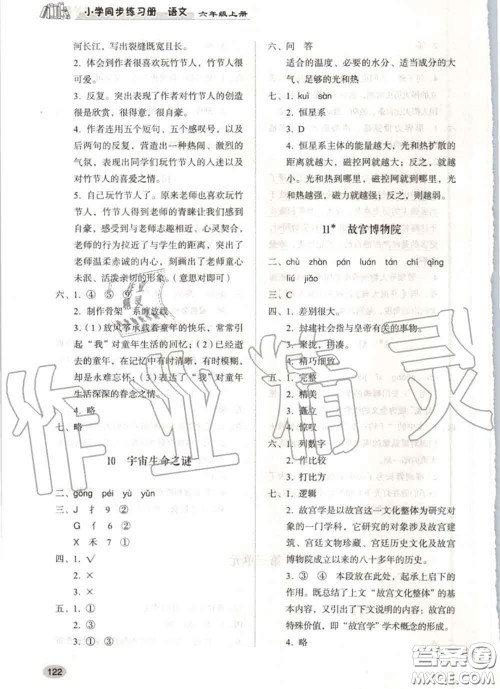 小学同步练习册 语文 六年级上册
何长江，写出裂缝既宽且长。
2. 体会到作者很喜欢玩竹节人，竹节人很吸引人。
3. 反复。突出表现了作者对竹节人的创造很是欣赏，很得意，很自豪。
4. 作者连用五个短句，五个感叹号，以及后两句的反复，营造出一种热闹、激烈的气氛，突出表现出同学们玩竹节人的入迷以及对竹节人的喜爱之情。
5. 自己玩竹节人了。原来老师也喜欢玩竹节人，作者因得到老师的青睐让我们感到自豪，感受到与老师志趣相近、心灵契合，老师的行为拉近了与学生的距离，突出表现了老师温柔赤诚的内心，刻画出了老师童心未泯、活泼亲切的形象。（意思对即可）
六、1. ④ ⑤ ⑥
2. 制作骨架 系缠放线
3.（1）放风筝承载着童年的快乐，常常引起“我”对童年生活的回忆；童年是回不去的，在记忆中有时清晰，有时模糊，却是永难忘怀；（2）表达了“我”对童年生活深深的眷念之情。
4. 略
七、略
10 宇宙生命之谜
二、gōng péi yù yǔn
三、J 扌 9 ②
G 亻 6 ②
X 禾 7 ①
四、1. √
2. ×
3. ×
五、1. ①
2. ④
3. ①
六、问 答
适合的温度、必要的水分、适当成分的大气、足够的光和热
七、1. kuī sǔn
2. 恒星系
3. D
4. 恒星系主体的能量越大，光和热扩散的距离就越大，磁控网就越大；反之，就越小。恒星磁力网到哪里，光和热到哪里，光和热越强，磁力就越强；反之，则越弱。
11* 故宫博物院
二、chù zhàn pán luán tán chī qīng
liú jiǎo
三、C
四、1. 差别很大。
2. 封建社会指与皇帝有关的事物。
3. 聚拢，拼凑。
4. 精巧细致。
五、1. 完整
2. 精美
3. 矗立
4. 惊叹
六、1. 列数字
2. 作比较
3. 打比方
七、1. 逻辑
2. 故宫学是以故宫这一文化整体为研究对象的一门学科，它研究的对象涉及故宫建筑、宫廷文物珍藏、宫廷历史文化及故宫博物院成立以来的八十多年的历史。
3. ③ ④ 本段放在此处，起承上启下的作用，它既总结了上文“故宫文化整体”的基本内涵，又引出了下文说明的内容：故宫的特殊价值，即“故宫学”学术概念的形成。
4. 略
122
作业精灵
答案圈
MXQE.COM